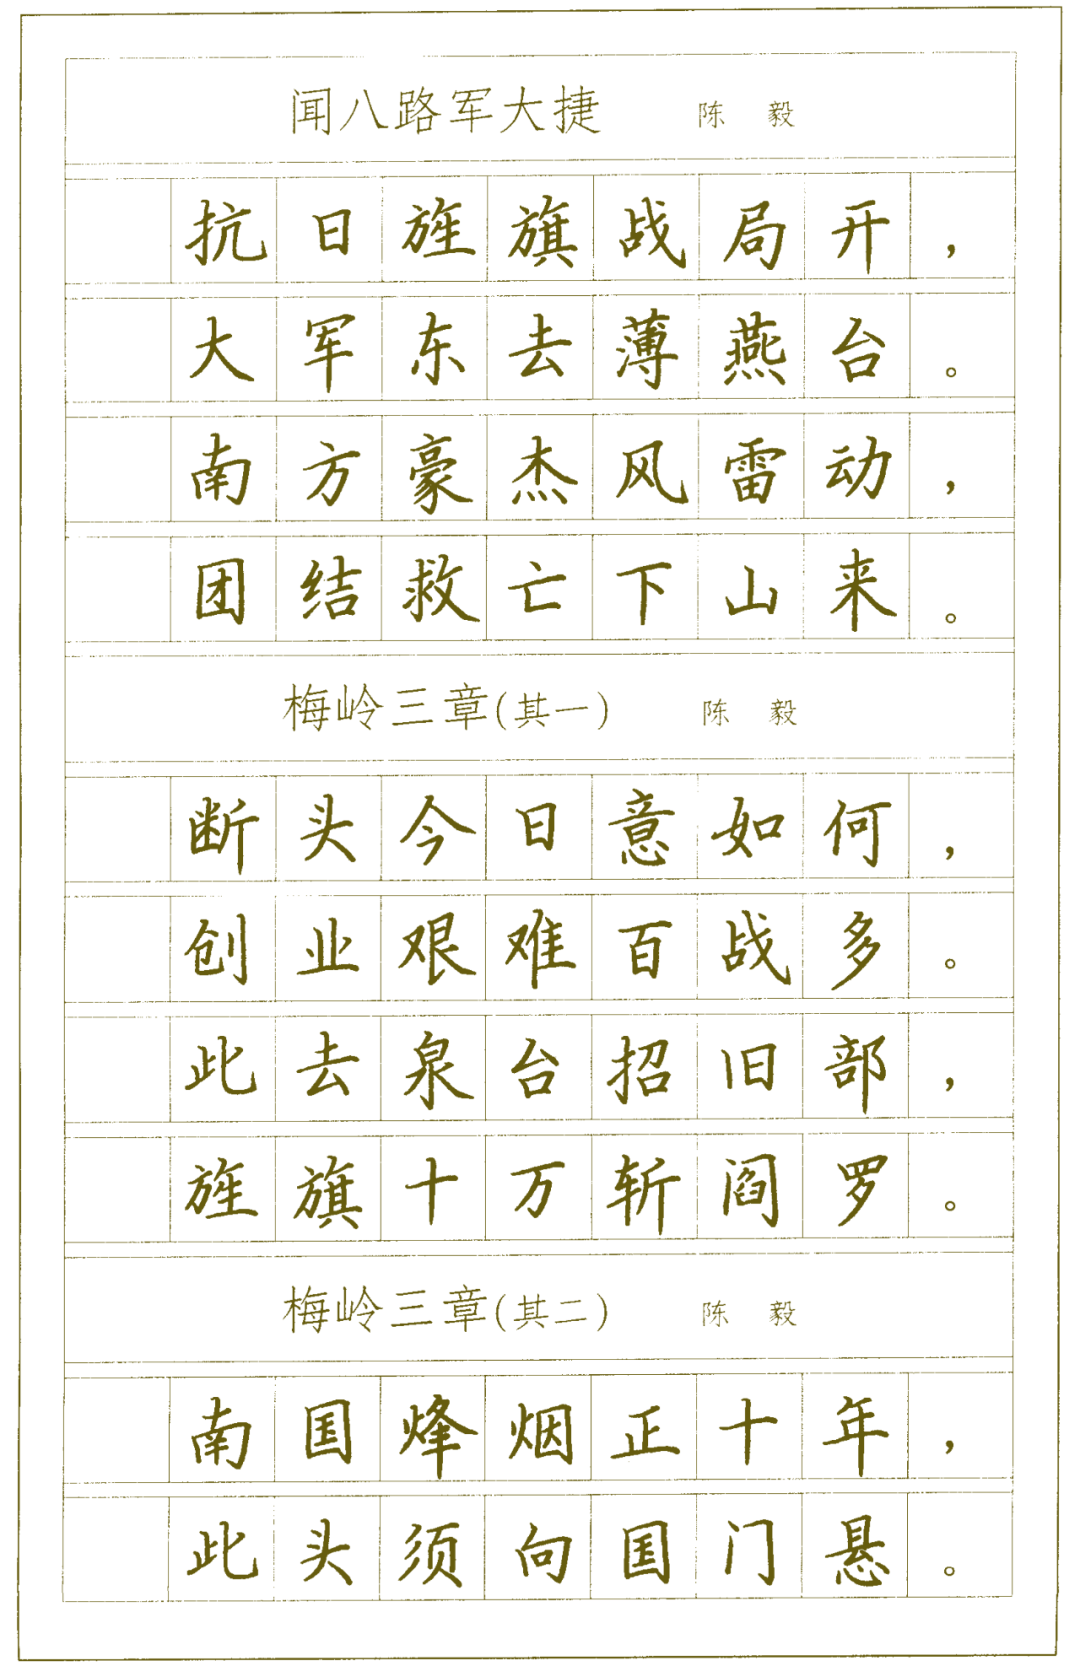 闻八路军大捷 陈毅
抗日旌旗战局开，
大军东去薄燕台。
南方豪杰风雷动，
团结救亡下山来。
梅岭三章(其一) 陈毅
断头今日意如何，
创业艰难百战多。
此去泉台招旧部，
旌旗十万斩阎罗。
梅岭三章(其二) 陈毅
南国烽烟正十年，
此头须向国门悬。